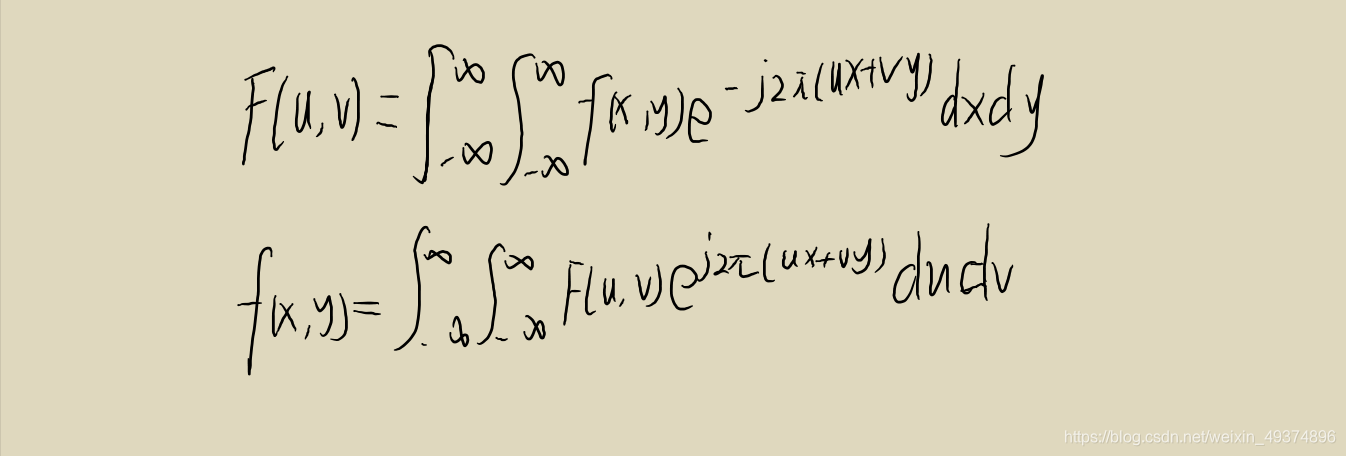 F(u,v)=∫_{-∞}^{∞}∫_{-∞}^{∞}f(x,y)e^{-j2π(ux+vy)}dxdy
f(x,y)=∫_{-∞}^{∞}∫_{-∞}^{∞}F(u,v)e^{j2π(ux+vy)}dudv
https://blog.csdn.net/weixin_49374896